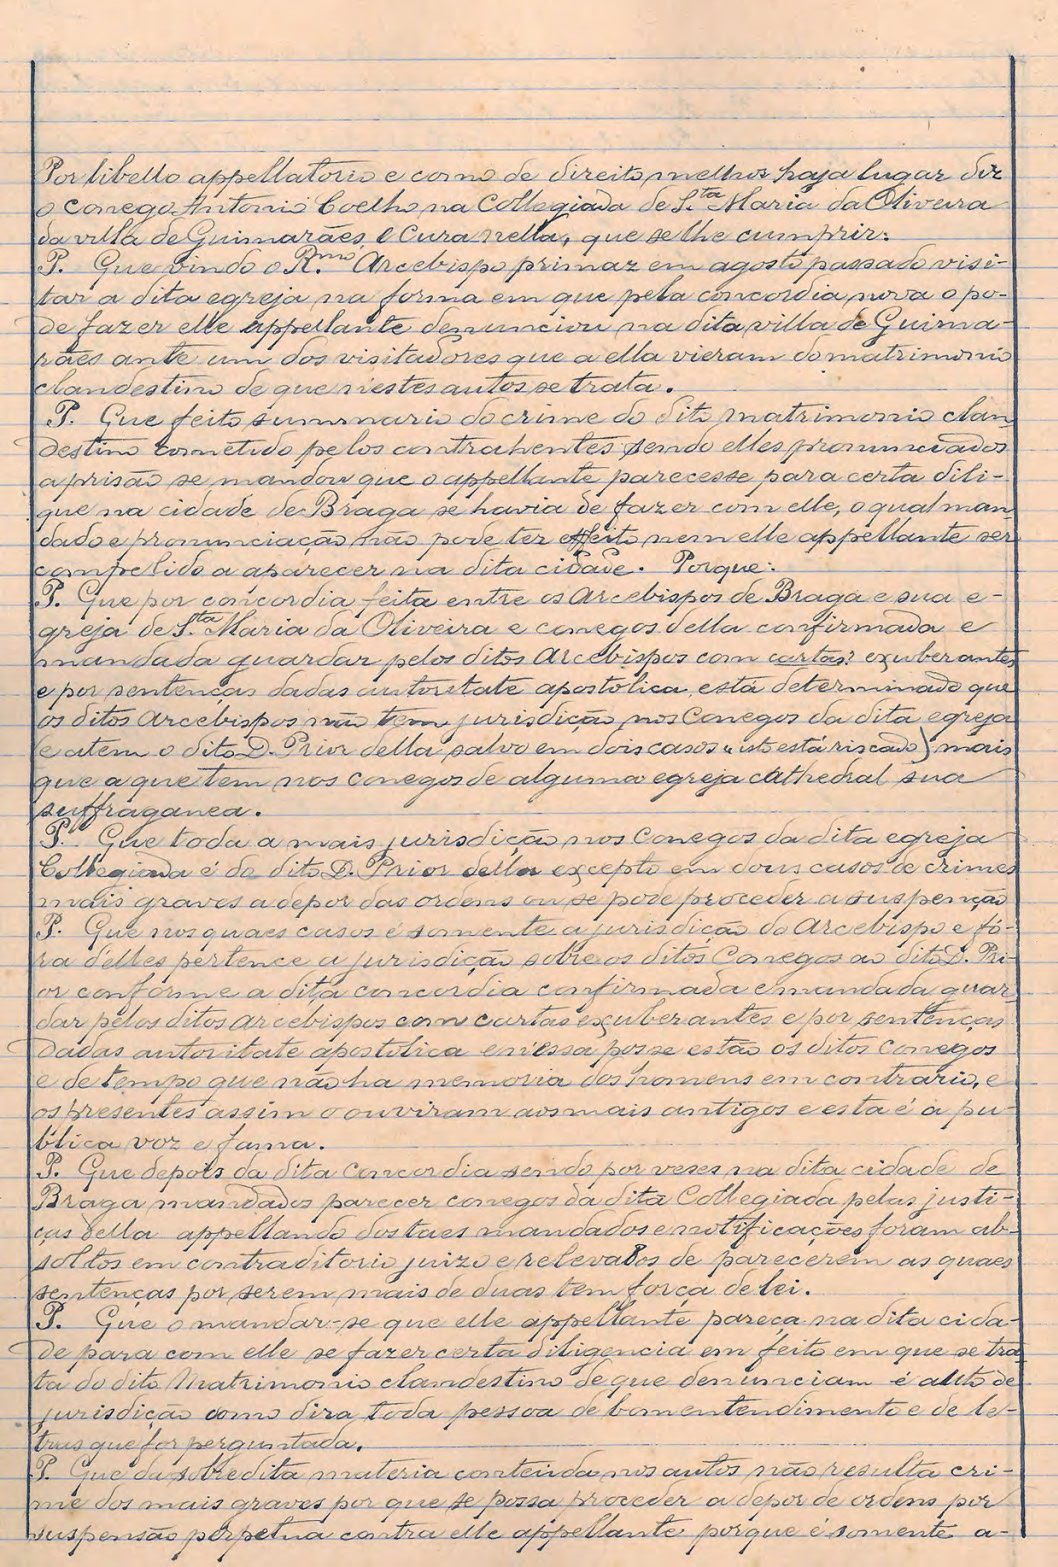 Por libello appellatorio e como de direito melhor haja lugar diz
o conego Antonio Coelho na Collegiada de S.ta Maria da Oliveira
da villa de Guimarães, e Cura nella, que se lhe cumprir:
P. Que vindo o R.mo Arcebispo primaz em agosto passado visi-
tar a dita egreja na forma em que pela concordia nova o po-
de fazer elle appellante denunciou na dita villa de Guima-
rães ante um dos visitadores que a ella vieram do matrimonio
clandestino de que n'estes autos se trata.
P. Que feito summario do crime do dito matrimonio clan-
destino cometido pelos contrahentes sendo elles pronunciados
a prisão se mandou que o appellante parecesse para certa dili-
que na cidade de Braga se havia de fazer com elle, o qual man-
dado e pronunciação não pode ter effeito nem elle appellante ser
compelido a aparecer na dita cidade. Porque:
P. Que por concordia feita entre os Arcebispos de Braga e sua e-
greja de S.ta Maria da Oliveira e conegos della confirmada e
mandada guardar pelos ditos Arcebispos com cartas? exuberantes
e por sentenças dadas autoritate apostolica está determinado que
os ditos Arcebispos não tem jurisdição nos Conegos da dita egreja
(e atem o dito D. Prior della salvo em dois casos "isto está riscado) mais
que a que tem nos conegos de alguma egreja cathedral sua
suffraganea.
P. Que toda a mais jurisdição nos Conegos da dita egreja
Collegiada é do dito D. Prior della excepto em dous casos de crimes
mais graves a depor das ordens ou se pode proceder a suspenção
P. Que nos quaes casos é somente a jurisdição do Arcebispo e fó-
ra d'elles pertence a jurisdição sobre os ditos Conegos ao dito D. Pri-
or conforme a dita concordia confirmada e mandada guar-
dar pelos ditos Arcebispos com cartas exuberantes e por sentenças
dadas autoritate apostolica e n'essa posse estão os ditos Conegos
e de tempo que não ha memoria dos homens em contrario, e
os presentes assim o ouviram aos mais antigos e esta é a pu-
blica voz e fama.
P. Que depois da dita Concordia sendo por veses na dita cidade de
Braga mandados parecer conegos da dita Collegiada pelas justi-
ças della appellando dos taes mandados e notificações foram ab-
soltos em contraditorio juizo e relevados de parecerem as quaes
sentenças por serem mais de duas tem força de lei.
P. Que o mandar-se que elle appellante pareça na dita cida-
de para com elle se fazer certa diligencia em feito em que se tra-
ta do dito Matrimonio clandestino de que denunciam é auto de
jurisdição como dira toda pessoa de bom entendimento e de le-
tras que for perguntada.
P. Que da sobredita materia conteuda nos autos não resulta cri-
me dos mais graves por que se possa proceder a depor de ordens por
suspensão perpetua contra elle appellante porque é somente a-